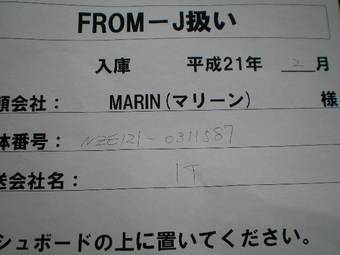 FROM－J扱い
入庫 平成21年 2月
頼会社： MARIN(マリーン) 様
体番号： NZE121-0311587
送会社名： IT
シュボードの上に置いてください。